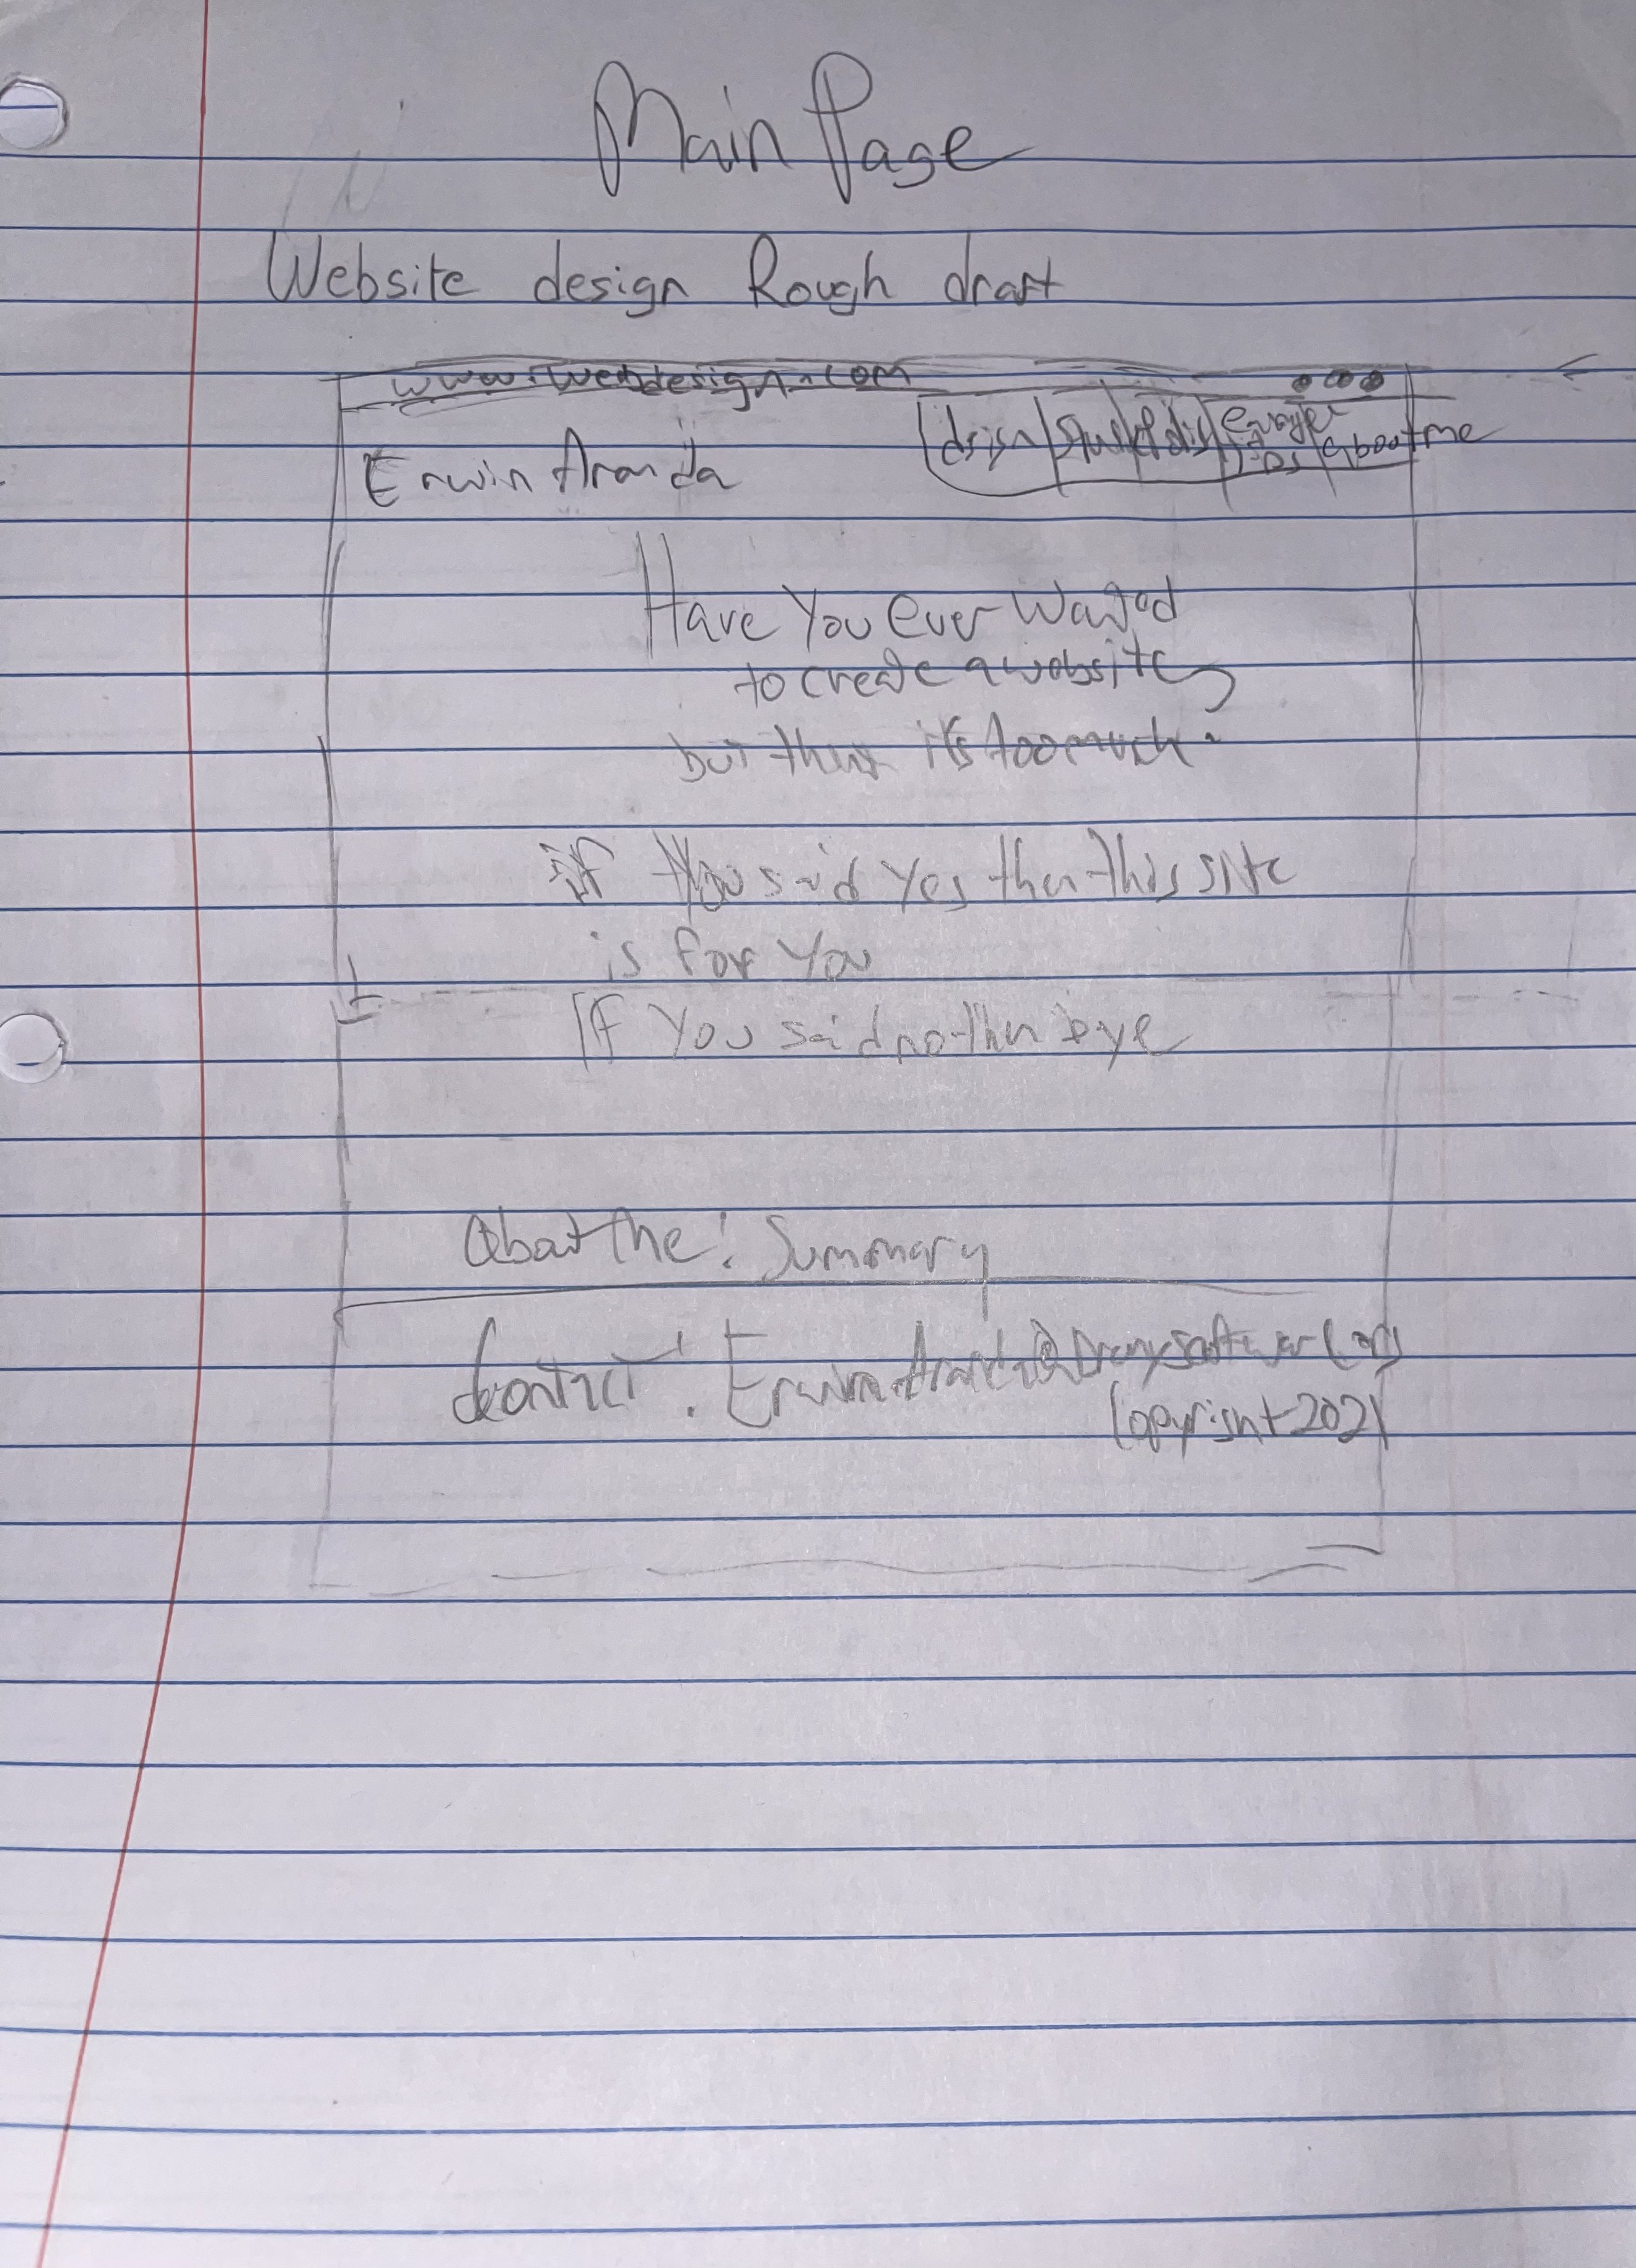 Main Page
Website design Rough draft
www.webdesign.com
design
about me
Erwin Aranda
Have You ever wanted
to create a website
but think it's too much.
if You said yes then this site
is for You
If You said no then bye
About the: Summary
Contact:
Copyright 2021